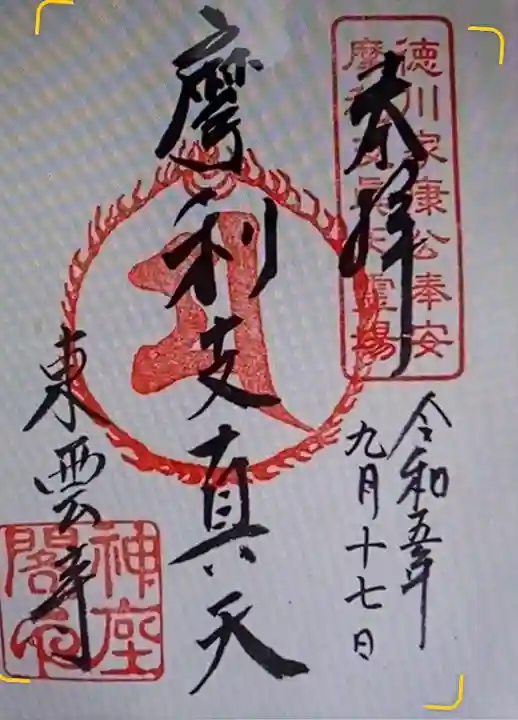 徳川家康公奉安
摩利支眞天靈場
奉拝
令和五年
九月十七日
摩利支真天
東雲寺
神座
閣印